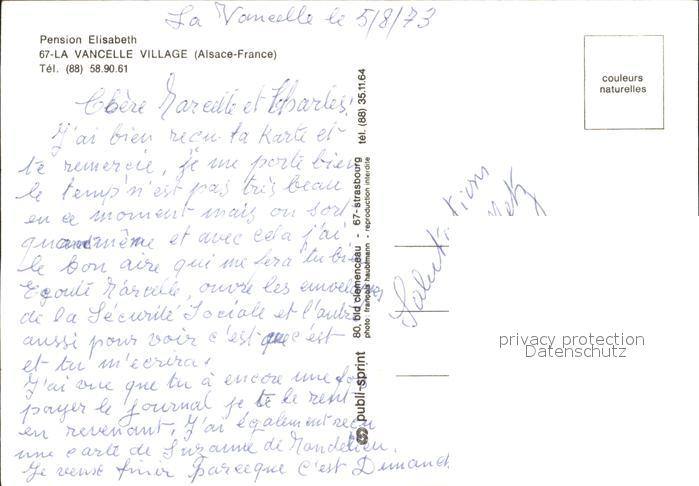 La Vancelle le 5/8/73
Pension Elisabeth
67-LA VANCELLE VILLAGE (Alsace-France)
Tél. (88) 58.90.61
couleurs
naturelles
Chère Marcelle et Charles,
J'ai bien reçu ta Karte et
te remercie, je me porte bien
le temp n'est pas très beau
en ce moment mais on sort
quandmême et avec cela j'ai
le bon aire qui me fera tu bien
Ecoute Marcelle, ouvre les enveloppes
de la Sécurité Sociale et l'autre
aussi pour voir c'est que c'est
et tu m'écriras.
J'ai vue que tu à encore une fois
payer le journal je te le rent
en revenant. J'ai également reçu
une carte de Suzanne de Mandelieu.
Je veux finir parceque c'est Dimanch
Salutations
Metz
publi-sprint 80, bld clemenceau - 67-strasbourg tél. (88) 35.11.64
photo: françois haubtmann - reproduction interdite
privacy protection
Datenschutz